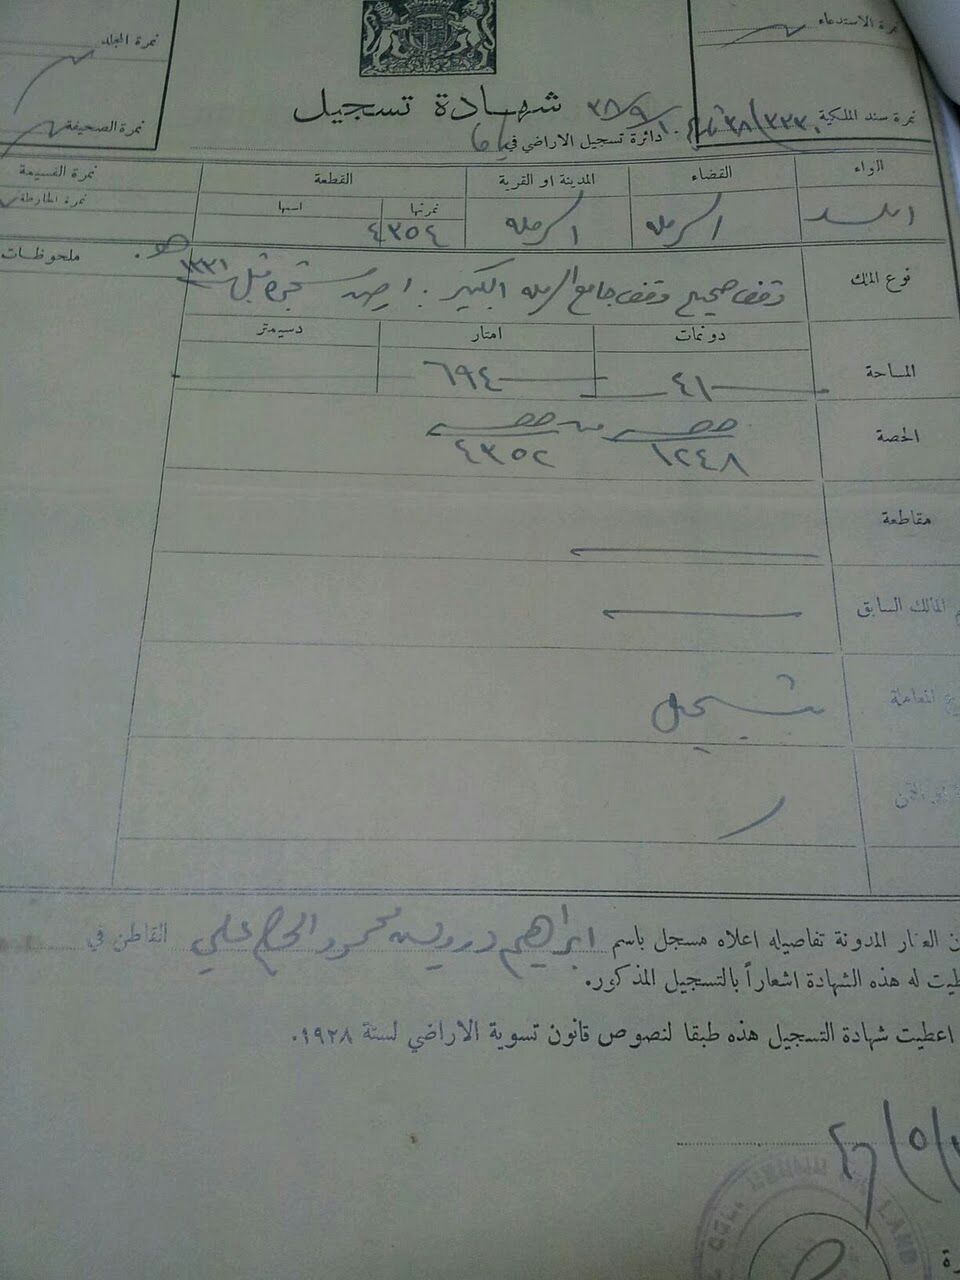 نمرة الاستدعاء
نمرة المجلد
شهادة تسجيل
نمرة سند الملكية
نمرة الصحيفة
دائرة تسجيل الاراضي في يافا
الواء
القضاء
المدينة او القرية
القطعة
نمرتها
اسمها
نمرة القسيمة
نمرة الخارطة
اللد
الرمله
الرمله
٤٣٥٤
ملحوظات
نوع الملك
وقف صحيح وقف جامع الرمله الكبير . ارض شجره قبل ١٣٣١ هـ .
المساحة
دونمات
امتار
دسيمتر
٤١
٦٩٤
الحصة
حصه من حصه
١٢٤٨
٤٣٥٢
مقاطعة
المالك السابق
المعاملة
تسجيل
العقار المدونة تفاصيله اعلاه مسجل باسم ابراهيم درويش محمود الحاج علي القاطن في
له هذه الشهادة اشعاراً بالتسجيل المذكور.
اعطيت شهادة التسجيل هذه طبقا لنصوص قانون تسوية الاراضي لسنة ١٩٢٨.
LAND